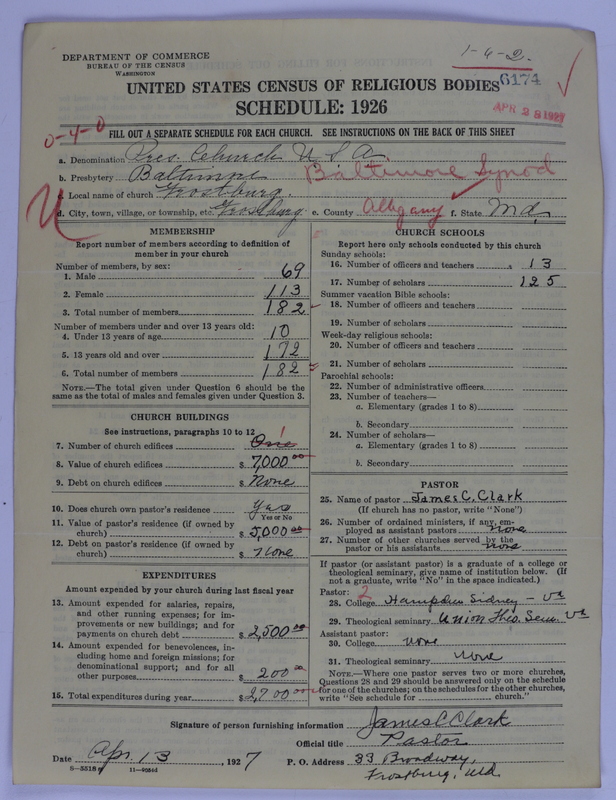 1-6-2.
DEPARTMENT OF COMMERCE
BUREAU OF THE CENSUS
WASHINGTON
UNITED STATES CENSUS OF RELIGIOUS BODIES 6174
SCHEDULE: 1926
APR 28 1927
0-4-0
FILL OUT A SEPARATE SCHEDULE FOR EACH CHURCH. SEE INSTRUCTIONS ON THE BACK OF THIS SHEET
a. Denomination Pres. Church U S A
b. Presbytery Baltimore Baltimore Synod
c. Local name of church Frostburg.
d. City, town, village, or township, etc. Frostburg e. County Allegany f. State Md.
MEMBERSHIP
Report number of members according to definition of
member in your church
Number of members, by sex:
1. Male 69
2. Female 113
3. Total number of members 182
Number of members under and over 13 years old:
4. Under 13 years of age 10
5. 13 years old and over 172
6. Total number of members 182
NOTE.—The total given under Question 6 should be the
same as the total of males and females given under Question 3.
CHURCH BUILDINGS
See instructions, paragraphs 10 to 12
7. Number of church edifices One 1
8. Value of church edifices $ 7,000.00
9. Debt on church edifices $ None
10. Does church own pastor's residence Yes
Yes or No
11. Value of pastor's residence (if owned by
church) $ 5,000.00
12. Debt on pastor's residence (if owned by
church) $ None
EXPENDITURES
Amount expended by your church during last fiscal year
13. Amount expended for salaries, repairs,
and other running expenses; for im-
provements or new buildings; and for
payments on church debt $ 2,500.00
14. Amount expended for benevolences, in-
cluding home and foreign missions; for
denominational support; and for all
other purposes $ 200.00
15. Total expenditures during year $ 2,700.00
CHURCH SCHOOLS
Report here only schools conducted by this church
Sunday schools:
16. Number of officers and teachers 13
17. Number of scholars 125
Summer vacation Bible schools:
18. Number of officers and teachers
19. Number of scholars
Week-day religious schools:
20. Number of officers and teachers
21. Number of scholars
Parochial schools:
22. Number of administrative officers
23. Number of teachers—
a. Elementary (grades 1 to 8)
b. Secondary
24. Number of scholars—
a. Elementary (grades 1 to 8)
b. Secondary
PASTOR
25. Name of pastor James C. Clark
(If church has no pastor, write "None")
26. Number of ordained ministers, if any, em-
ployed as assistant pastors none
27. Number of other churches served by the
pastor or his assistants none
If pastor (or assistant pastor) is a graduate of a college or
theological seminary, give name of institution below. (If
not a graduate, write "No" in the space indicated.)
Pastor: 2
28. College Hampden Sidney - Va
29. Theological seminary Union Theo. Sem. Va
Assistant pastor:
30. College none
31. Theological seminary none
NOTE.—Where one pastor serves two or more churches,
Questions 28 and 29 should be answered only on the schedule
for one of the churches; on the schedules for the other churches,
write "See schedule for church."
Signature of person furnishing information James C Clark
Official title Pastor
Date Apr. 13, 1927 P. O. Address 33 Broadway,
Frostburg, Md.
11-9054d